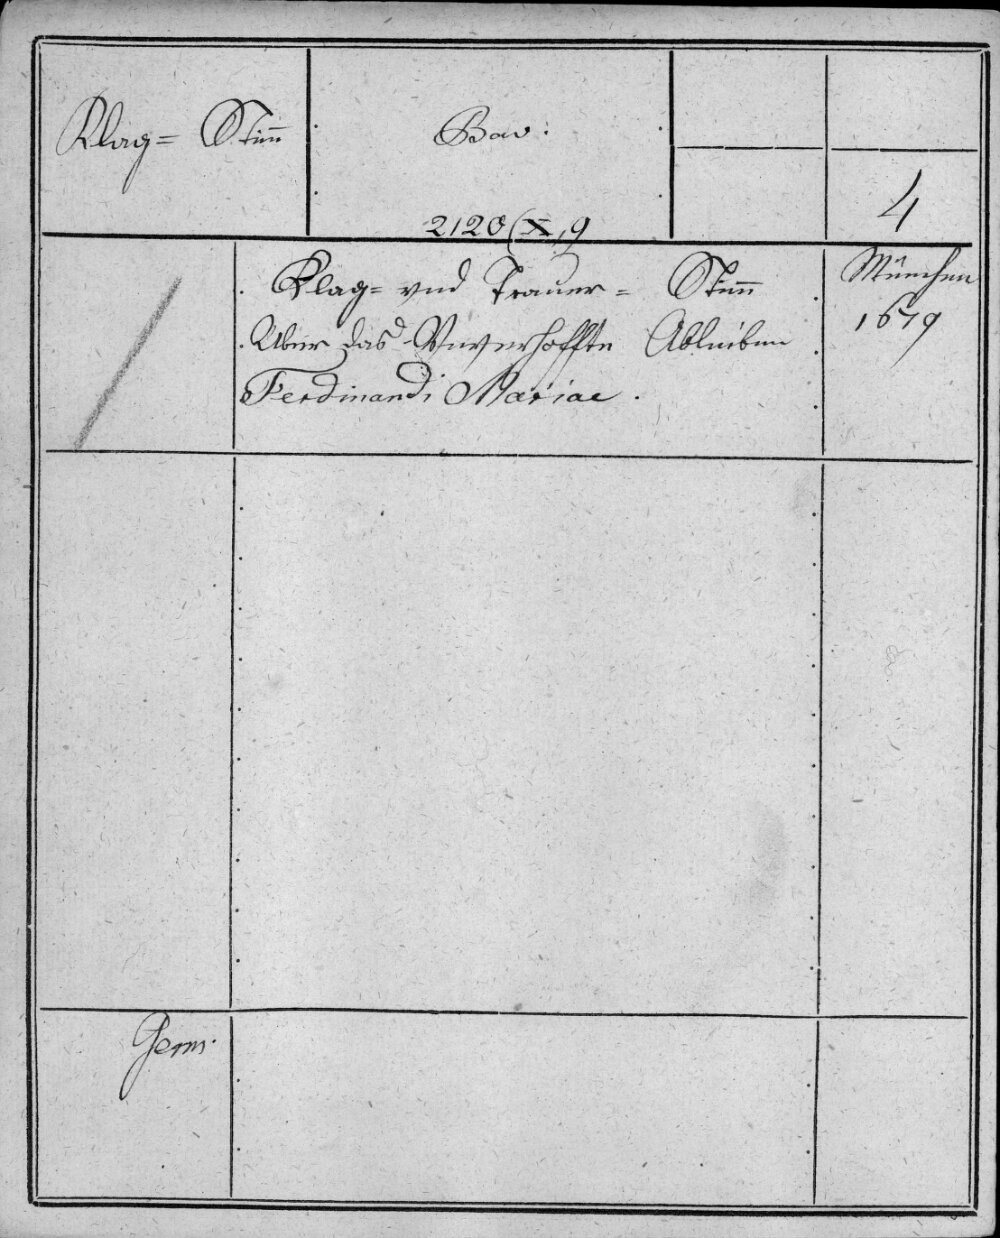 Klag= Stim̄
Bav:
2120 (X, 9
4
Klag= vnd Trauer= Stim̄
Uber das Vnverhoffte Ableiben
Ferdinandi Mariae.
München
1679
Germ.